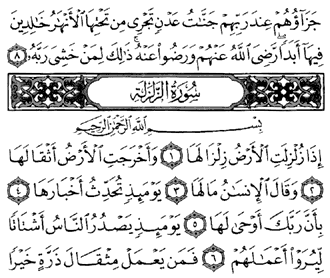 جَزَآؤُهُمْ عِندَ رَبِّهِمْ جَنَّٰتُ عَدْنٍ تَجْرِى مِن تَحْتِهَا ٱلْأَنْهَٰرُ خَٰلِدِينَ
فِيهَآ أَبَدًا رَّضِىَ ٱللَّهُ عَنْهُمْ وَرَضُوا۟ عَنْهُ ذَٰلِكَ لِمَنْ خَشِىَ رَبَّهُۥ ٨
سُورَةُ الزَّلْزَلَةِ
بِسْمِ ٱللَّهِ ٱلرَّحْمَٰنِ ٱلرَّحِيمِ
إِذَا زُلْزِلَتِ ٱلْأَرْضُ زِلْزَالَهَا ١ وَأَخْرَجَتِ ٱلْأَرْضُ أَثْقَالَهَا
٢ وَقَالَ ٱلْإِنسَٰنُ مَا لَهَا ٣ يَوْمَئِذٍ تُحَدِّثُ أَخْبَارَهَا ٤
بِأَنَّ رَبَّكَ أَوْحَىٰ لَهَا ٥ يَوْمَئِذٍ يَصْدُرُ ٱلنَّاسُ أَشْتَاتًا
لِّيُرَوْا۟ أَعْمَٰلَهُمْ ٦ فَمَن يَعْمَلْ مِثْقَالَ ذَرَّةٍ خَيْرًا